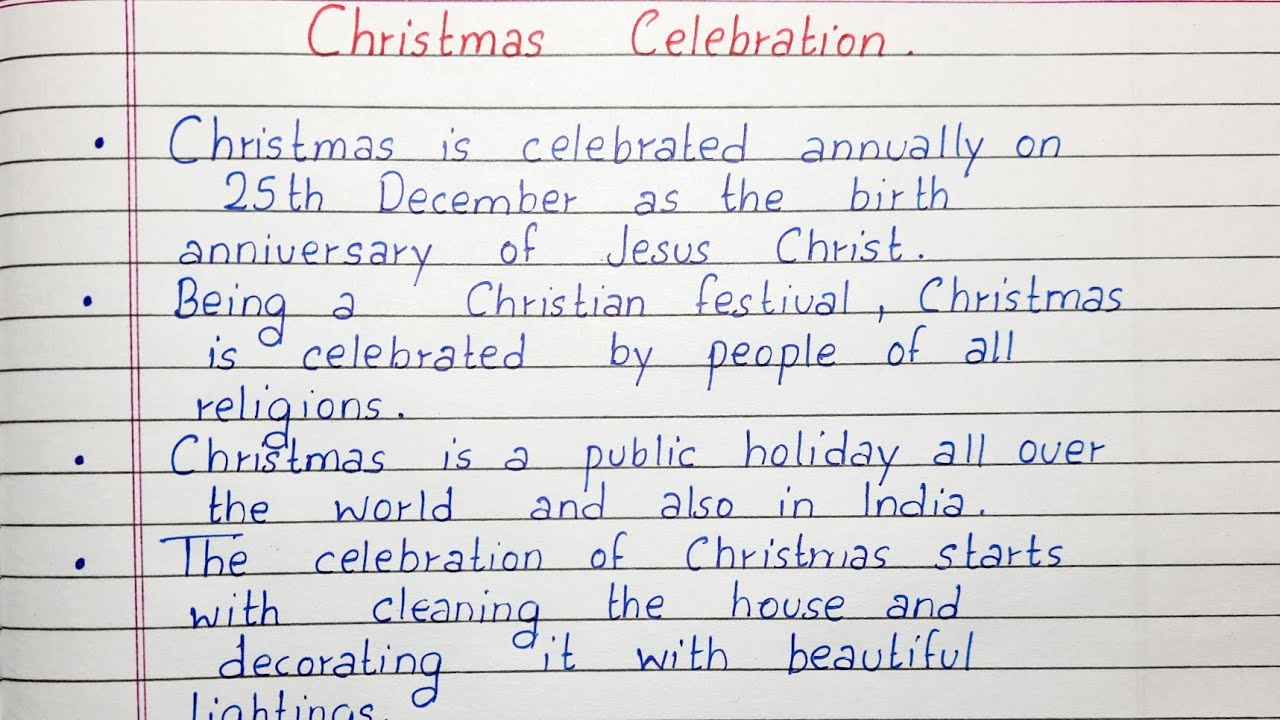 Christmas Celebration.
• Christmas is celebrated annually on
25th December as the birth
anniversary of Jesus Christ.
• Being a Christian festival, Christmas
is celebrated by people of all
religions.
• Christmas is a public holiday all over
the world and also in India.
• The celebration of Christmas starts
with cleaning the house and
decorating it with beautiful
lightings.